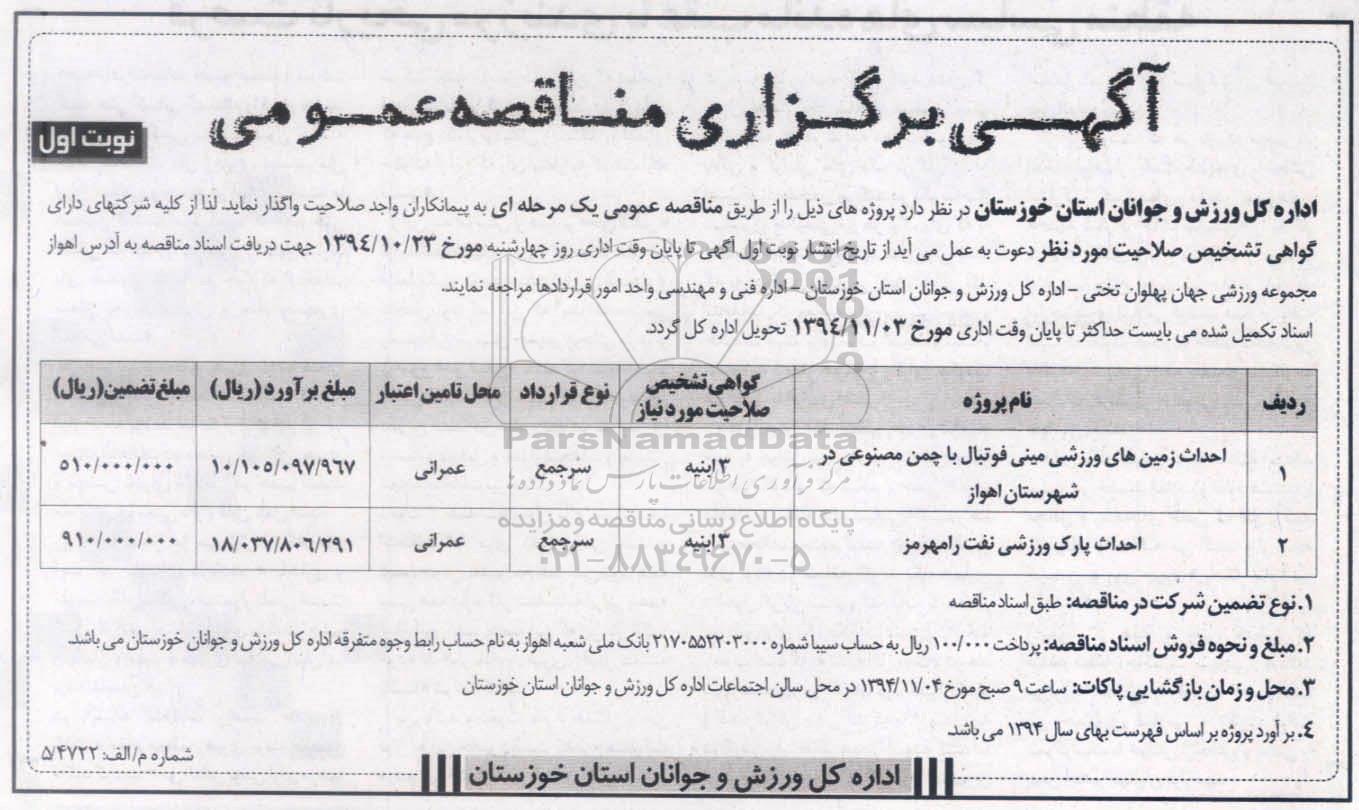 آگهی برگزاری مناقصه عمومی
نوبت اول
اداره کل ورزش و جوانان استان خوزستان در نظر دارد پروژه های ذیل را از طریق مناقصه عمومی یک مرحله ای به پیمانکاران واجد صلاحیت واگذار نماید. لذا از کلیه شرکتهای دارای
گواهی تشخیص صلاحیت مورد نظر دعوت به عمل می آید از تاریخ انتشار نوبت اول آگهی تا پایان وقت اداری روز چهارشنبه مورخ ۱۳۹٤/۱۰/۲۳ جهت دریافت اسناد مناقصه به آدرس اهواز
مجموعه ورزشی جهان پهلوان تختی – اداره کل ورزش و جوانان استان خوزستان – اداره فنی و مهندسی واحد امور قراردادها مراجعه نمایند.
اسناد تکمیل شده می بایست حداکثر تا پایان وقت اداری مورخ ۱۳۹٤/۱۱/۰۳ تحویل اداره کل گردد.
ردیف نام پروژه گواهی تشخیص صلاحیت مورد نیاز نوع قرارداد محل تامین اعتبار مبلغ برآورد (ریال) مبلغ تضمین (ریال)
۱ احداث زمین های ورزشی مینی فوتبال با چمن مصنوعی در شهرستان اهواز ۳ ابنیه سرجمع عمرانی ۱۰/۱۰۵/۰۹۷/۹۶۷ ۵۱۰/۰۰۰/۰۰۰
۲ احداث پارک ورزشی نفت رامهرمز ۳ ابنیه سرجمع عمرانی ۱۸/۰۳۷/۸۰۶/۲۹۱ ۹۱۰/۰۰۰/۰۰۰
ParsNamadData
مرکز فرآوری اطلاعات پارس نماد داده ها
پایگاه اطلاع رسانی مناقصه و مزایده
۰۲۱-۸۸۳٤۹۶۷۰-۵
۱. نوع تضمین شرکت در مناقصه: طبق اسناد مناقصه
۲. مبلغ و نحوه فروش اسناد مناقصه: پرداخت ۱۰۰/۰۰۰ ریال به حساب سیبا شماره ۲۱۷۰۵۵۲۲۰۳۰۰۰ بانک ملی شعبه اهواز به نام حساب رابط وجوه متفرقه اداره کل ورزش و جوانان خوزستان می باشد.
۳. محل و زمان بازگشایی پاکات: ساعت ۹ صبح مورخ ۱۳۹۴/۱۱/۰۴ در محل سالن اجتماعات اداره کل ورزش و جوانان استان خوزستان
٤. برآورد پروژه بر اساس فهرست بهای سال ۱۳۹۴ می باشد.
شماره م/الف: ۵/۴۷۲۲
اداره کل ورزش و جوانان استان خوزستان